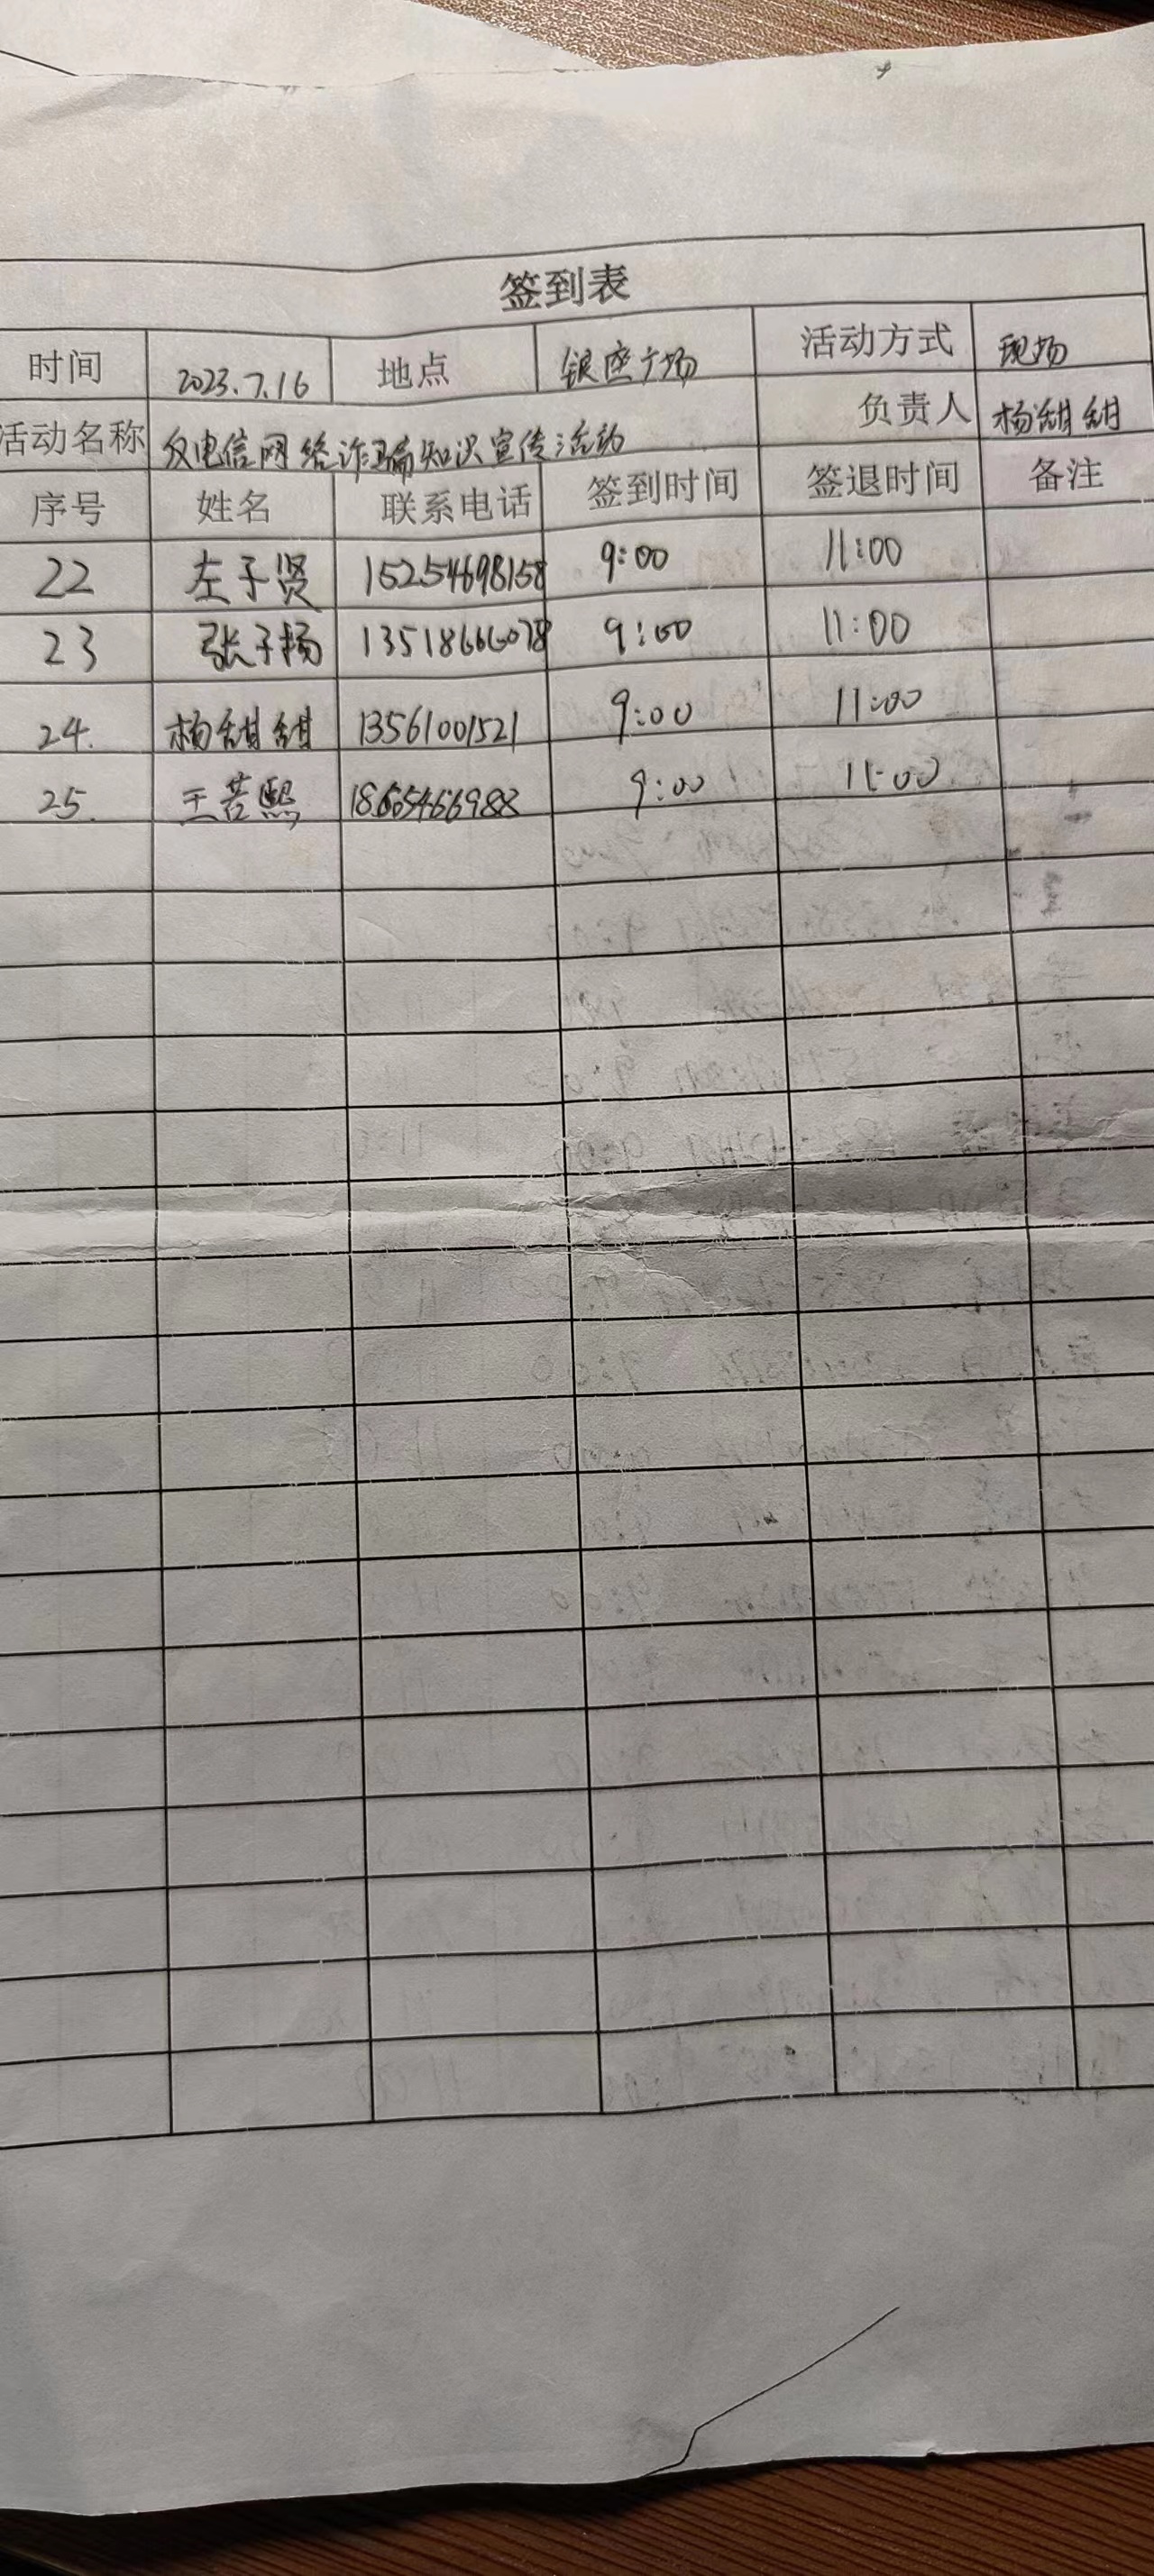 签到表
时间 2023.7.16 地点 银座广场 活动方式 现场
活动名称 反电信网络诈骗知识宣传活动 负责人 杨甜甜
序号 姓名 联系电话 签到时间 签退时间 备注
22 左子贤 15254698158 9:00 11:00
23 张子杨 13518666078 9:00 11:00
24. 杨甜甜 13561001521 9:00 11:00
25. 王若熙 18605466988 9:00 11:00